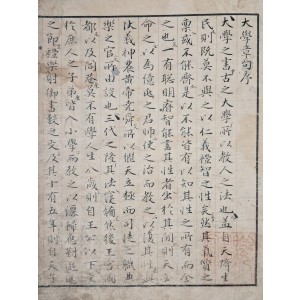 大學章句序
大學之書古之大學所以教人之法也蓋自天降生
民則既莫不與之以仁義禮智之性矣然其氣質之
稟或不能齊是以不能皆有以知其性之所有而全
之也一有聰明睿智能盡其性者出於其間則天必
命之以為億兆之君師使之治而教之以復其性此
伏羲神農黃帝堯舜所以繼天立極而司徒之職典
樂之官所由設也三代之隆其法寖備然後王宮國
都以及閭巷莫不有學人生八歲則自王公以下至
於庶人之子弟皆入小學而教之以灑掃應對進退
之節禮樂射御書數之文及其十有五年則自天子